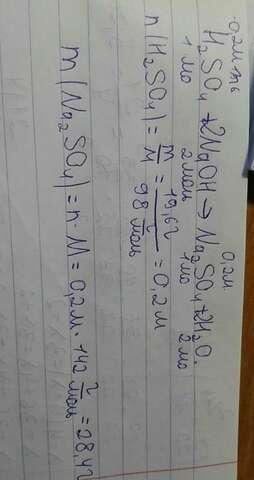 0,2м 0,2м.
H₂SO₄ + 2NaOH → Na₂SO₄ + 2H₂O.
1 мо 2 моль 1 мо 2 мо
n(H₂SO₄) = m/M = 19,6г/98 г/моль = 0,2 м
m(Na₂SO₄) = n · M = 0,2м · 142 г/моль = 28,4г